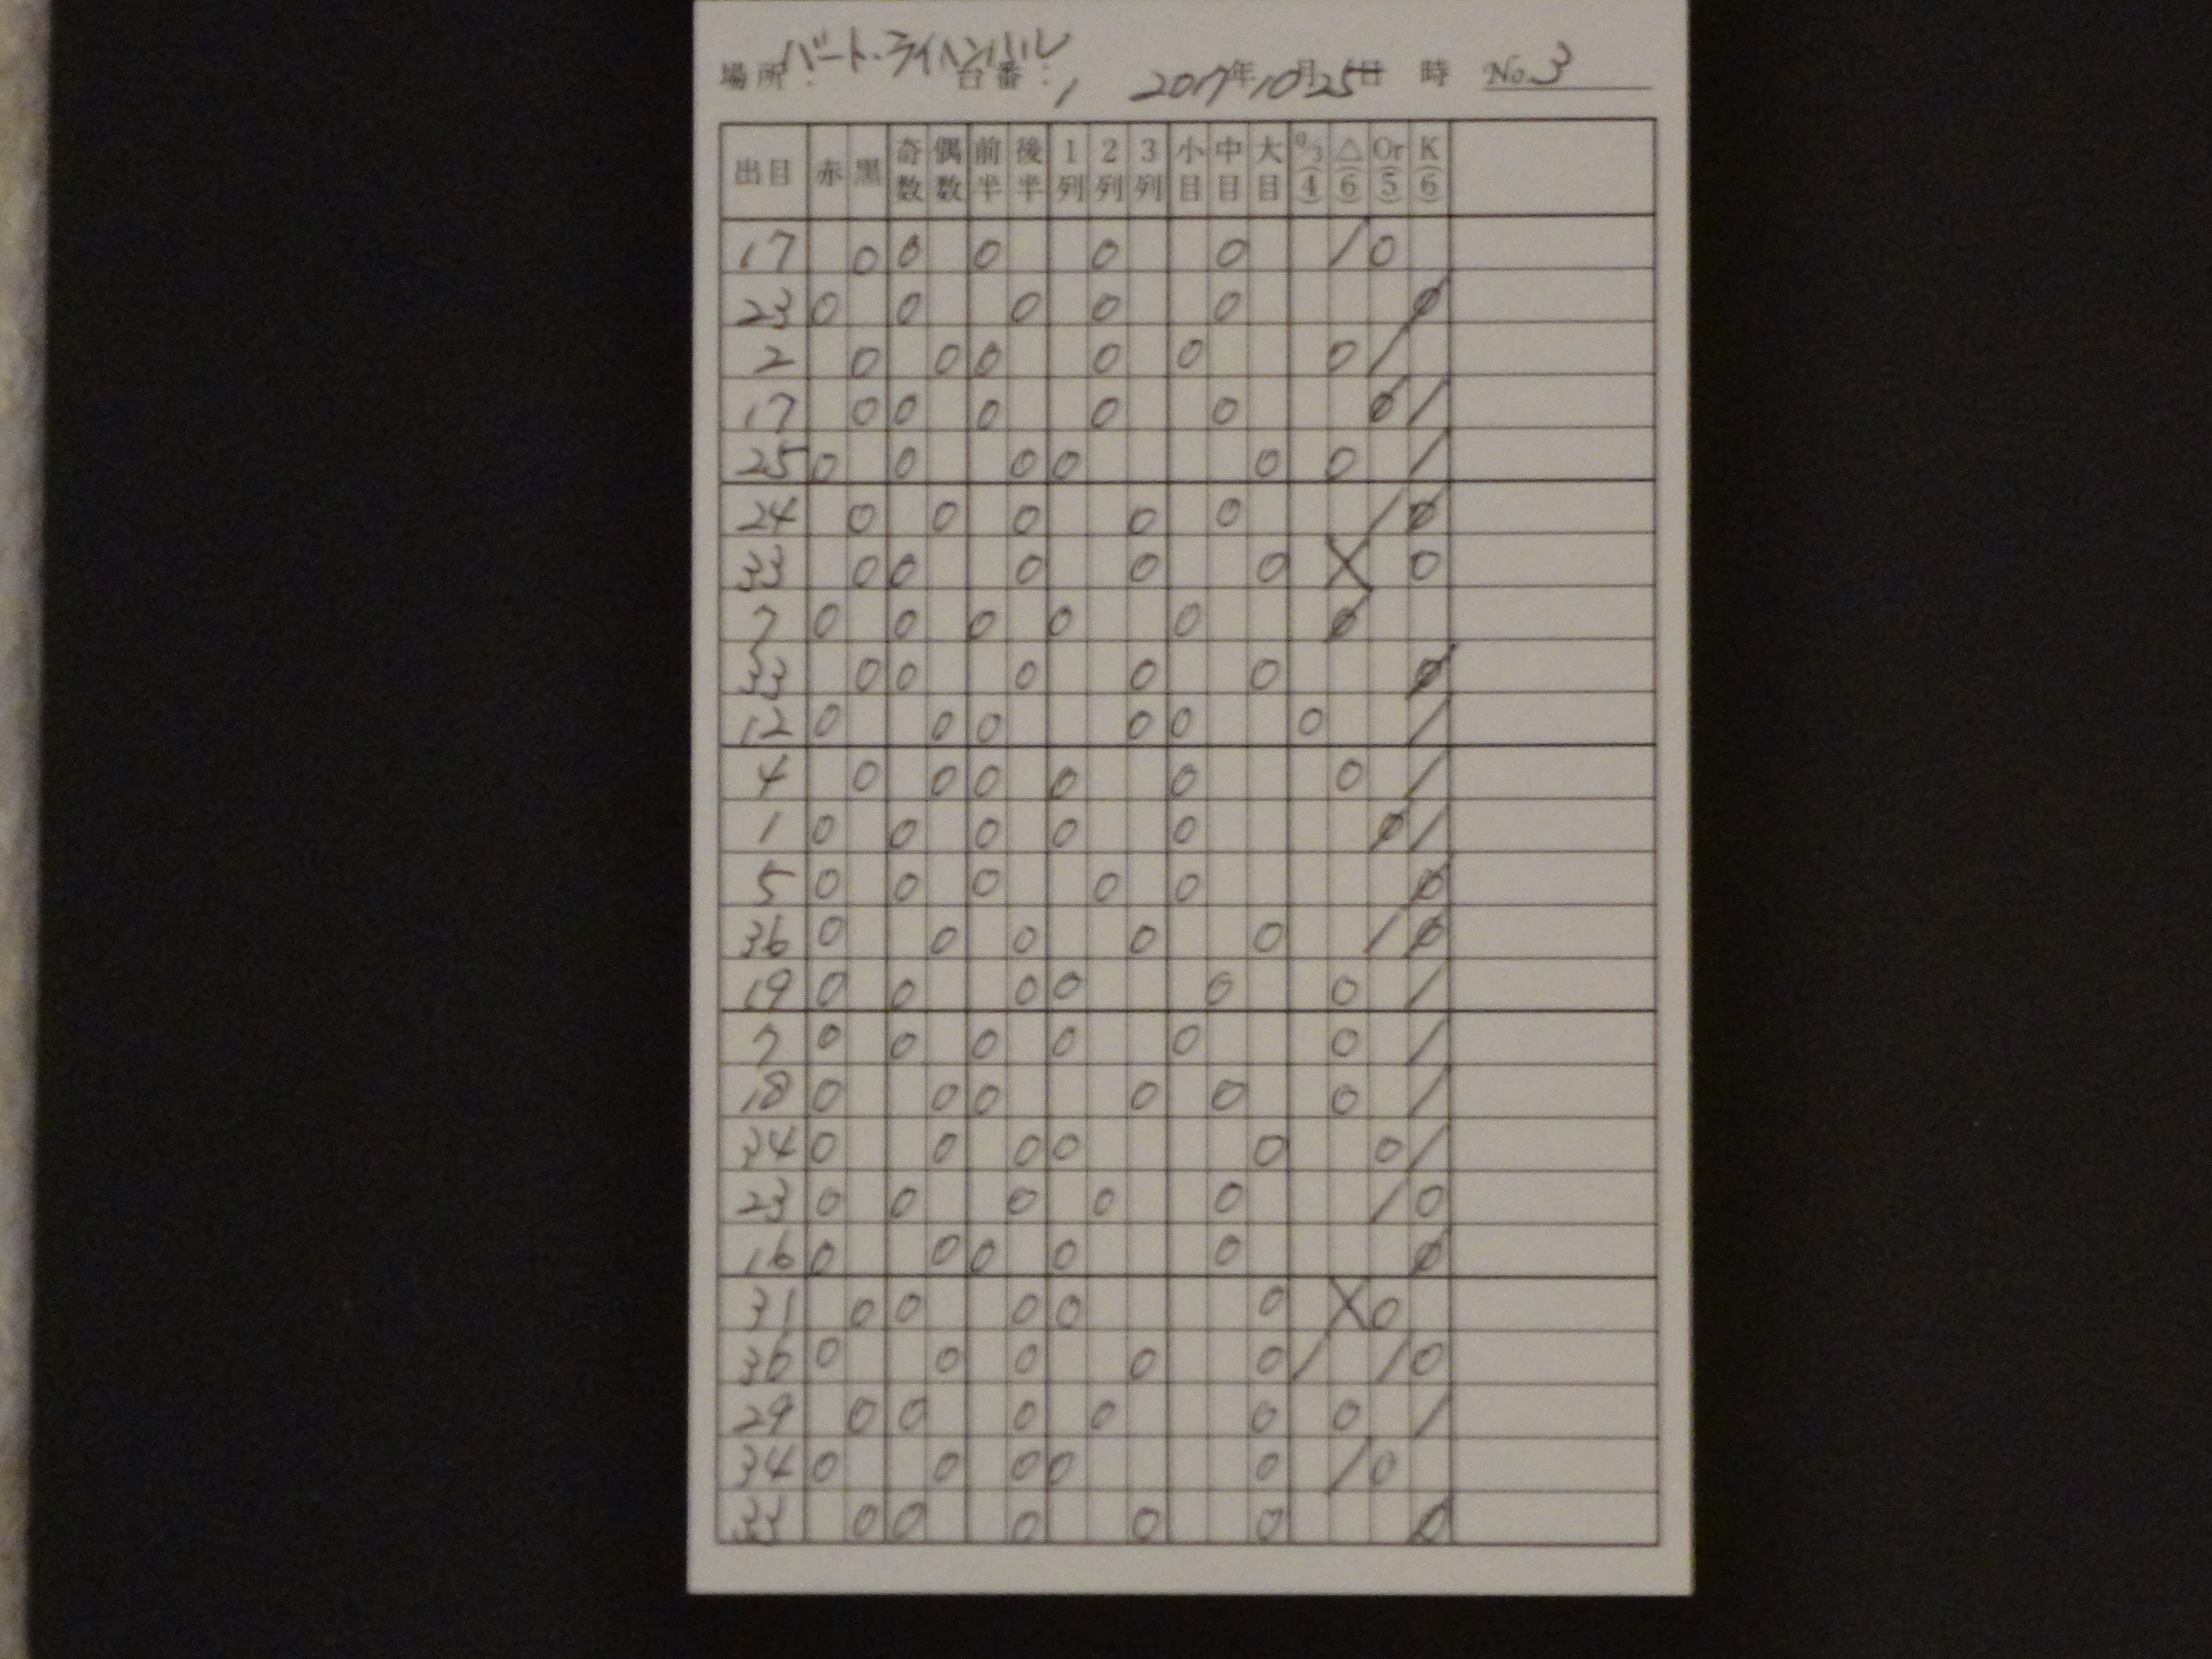 場所：バート・ライヘンハル 台番：1 2017年10月25日 時 No.3
出目 赤 黒 奇数 偶数 前半 後半 1列 2列 3列 小目 中目 大目 0/3(4) △(6) Or(5) K(6)
17 0 0 0 0 0 / 0
23 0 0 0 0 0 Ø
2 0 0 0 0 0 0 /
17 0 0 0 0 0 Ø /
25 0 0 0 0 0 0 /
24 0 0 0 0 0 / Ø
33 0 0 0 0 0 X 0
7 0 0 0 0 0 Ø
33 0 0 0 0 0 Ø
12 0 0 0 0 0 0 /
4 0 0 0 0 0 0 /
1 0 0 0 0 0 Ø /
5 0 0 0 0 0 Ø
36 0 0 0 0 0 / Ø
19 0 0 0 0 0 0 /
7 0 0 0 0 0 0 /
18 0 0 0 0 0 0 /
34 0 0 0 0 0 0 /
23 0 0 0 0 0 / 0
16 0 0 0 0 0 Ø
31 0 0 0 0 0 X 0
36 0 0 0 0 0 / / 0
29 0 0 0 0 0 0 /
34 0 0 0 0 0 / 0
33 0 0 0 0 0 Ø